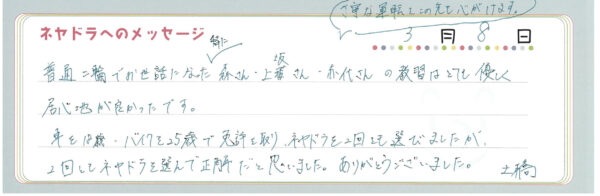 安全な運転をこの先も心がけます。
ネヤドラへのメッセージ
3月8日
特に
普通二輪でお世話になった森さん・上坂さん・赤代さんの教習はとても優しく
居心地が良かったです。
車を18歳・バイクを25歳で免許を取り、ネヤドラを2回とも選びましたが、
2回ともネヤドラを選んで正解だと思いました。ありがとうございました。
土橋